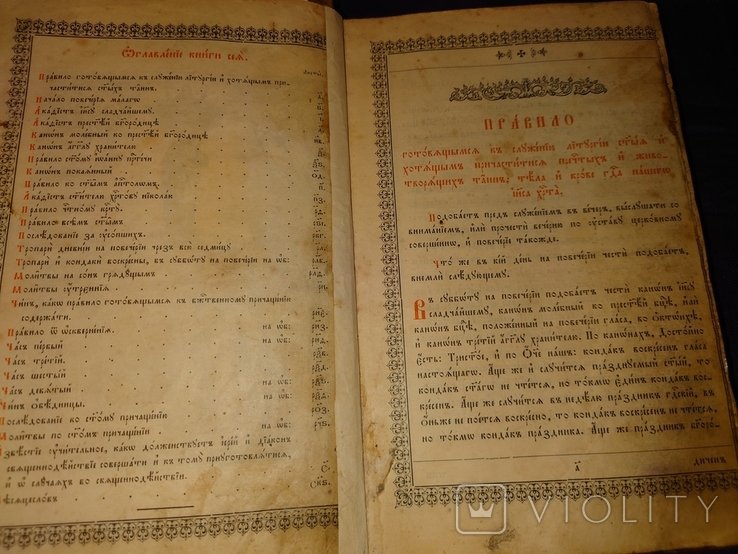 Ѡглавле́нїе кни́ги сеѧ̀.
Пра́вило гото́вѧщымсѧ къ слꙋже́нїю лїтꙋргі́и и҆ хотѧ́щымъ при-
части́тисѧ ст҃ы́хъ та́инъ.
Нача́ло повече́рїѧ ма́лагѡ
А҆ка́ѳїстъ і҆и҃сꙋ сладча́йшемꙋ.
А҆ка́ѳїстъ прест҃ѣ́й бг҃оро́дицѣ
Канѡ́нъ моле́бный ко прест҃ѣ́й бг҃оро́дицѣ
Канѡ́нъ а҆́гг҃лꙋ храни́телю
Пра́вило ст҃о́мꙋ і҆ѡа́ннꙋ прⷣте́чи
Канѡ́нъ покаѧ́нный
Пра́вило ко ст҃ы̑мъ а҆пⷭ҇то́лѡмъ.
А҆ка́ѳїстъ ст҃и́телю хрⷭ҇то́вꙋ нїкола́ю
Пра́вило чⷭ҇тно́мꙋ крⷭ҇тꙋ̀.
Пра́вило всѣ̑мъ ст҃ы̑мъ
Послѣ́дованїе за ᲂу҆со́пшихъ.
Тропарѝ дне́внїи на повече́рїи чрез̾ всѐ седми́цꙋ
Тропарѝ и҆ кондакѝ воскрє́сны, въ сꙋббѡ́тꙋ на повече́рїи на ѻ҆б:
Моли̑твы на со́нъ грѧдꙋ́щымъ.
Моли̑твы ᲂу҆́трєннїѧ
Чи́нъ, ка́кѡ пра́вило гото́вѧщымсѧ къ бж҃е́ственномꙋ причаще́нїю
содержа́ти.
Пра́вило ѿ ѡ҆скверне́нїѧ. на ѻ҆б:
Ча́съ пе́рвый
Ча́съ тре́тїй.
Ча́съ шесты́й на ѻ҆б:
Ча́съ девѧ́тый на ѻ҆б:
Чи́нъ ѻ҆бѣ́дницы.
Послѣ́дованїе ко ст҃о́мꙋ причаще́нїю
Моли̑твы по ст҃ѣ́мъ причаще́нїи на ѻ҆б:
И҆звѣ́стїе ᲂу҆чи́тельное, ка́кѡ до́лженствꙋетъ і҆ере́й и҆ дїа́конъ
свѧщеннодѣ́йствїе соверша́ти и҆ къ томꙋ̀ приготовлѧ́тисѧ,
и҆ ѡ҆ слꙋ́чаѧхъ во свѧщеннодѣ́йствїи.
Мѣсѧцесло́въ
ПРА́ВИЛО
гото́вѧщымсѧ къ слꙋже́нїю лїтꙋргі́и ст҃ы́ѧ и҆
хотѧ́щымъ причасти́тисѧ прⷭ҇чⷭ҇тыхъ и҆ живо-
творѧ́щихъ та́инъ, тѣ́ла и҆ кро́ве гдⷭ҇а на́шегѡ
і҆и҃са хрⷭ҇та̀.
Подоба́етъ пред̾ слꙋже́нїемъ въ ве́черъ, выслꙋ́шати со
внима́нїемъ, и҆лѝ прочестѝ вече́рню по ᲂу҆ста́вꙋ церко́вномꙋ
соверше́ннѡ, и҆ повече́рїе та́кожде.
Что́ же въ кі́й де́нь на повече́рїи честѝ подоба́етъ,
внемлѝ слѣ́дꙋющемꙋ.
Въ сꙋббѡ́тꙋ на повече́рїи подоба́етъ честѝ канѡ́нъ і҆и҃сꙋ
сладча́йшемꙋ, канѡ́нъ моле́бный ко прест҃ѣ́й бцⷣѣ, и҆лѝ
канѡ́нъ бцⷣѣ, положе́нный на повече́рїи гла́са, во ѻ҆кто́ихѣ,
и҆ канѡ́нъ тре́тїй а҆́гг҃лꙋ храни́телю. По канѡ́нахъ, Досто́йно
є҆́сть: Трист҃о́е, и҆ по Ѻ҆́ч҃е на́шъ: конда́къ воскре́сенъ гла́са
настоѧ́щагѡ. А҆́ще же и҆ слꙋчи́тсѧ пра́зднꙋемый ст҃ы́й, то̀
конда́къ ст҃а́гѡ не чте́тсѧ, но то́кмѡ є҆ди́нъ конда́къ вос-
кре́сенъ. А҆́ще же слꙋчи́тсѧ въ недѣ́лю пра́здникъ гдⷭ҇скїй, въ
ѻ҆́ньже не пое́тсѧ воскре́сно, то̀ конда́къ воскре́сенъ не чте́тсѧ,
но то́кмѡ конда́къ пра́здника. А҆́ще же пра́здникъ бг҃оро́-
а҃
дичен̾
VIOLITY